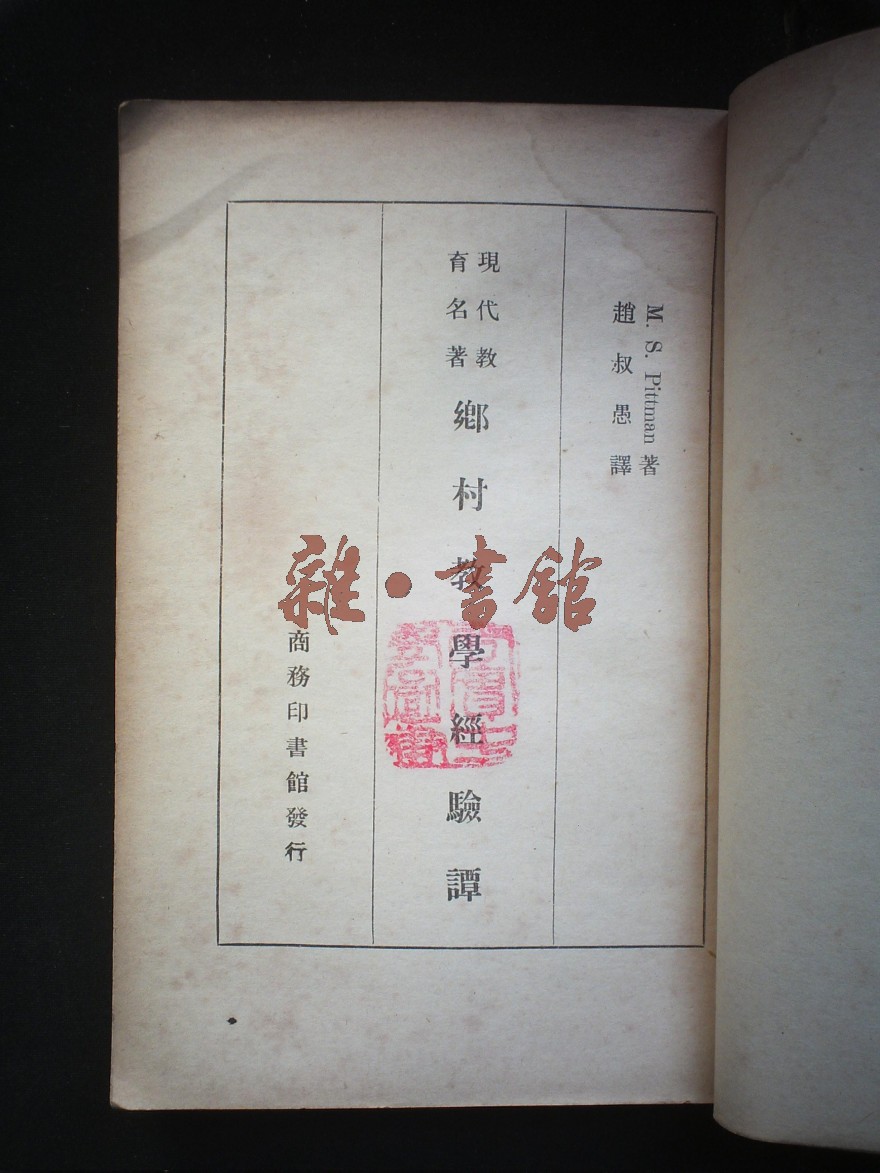 M. S. Pittman 著
趙叔愚譯
現代教
育名著
鄉村教學經驗譚
商務印書館發行
雜·書館